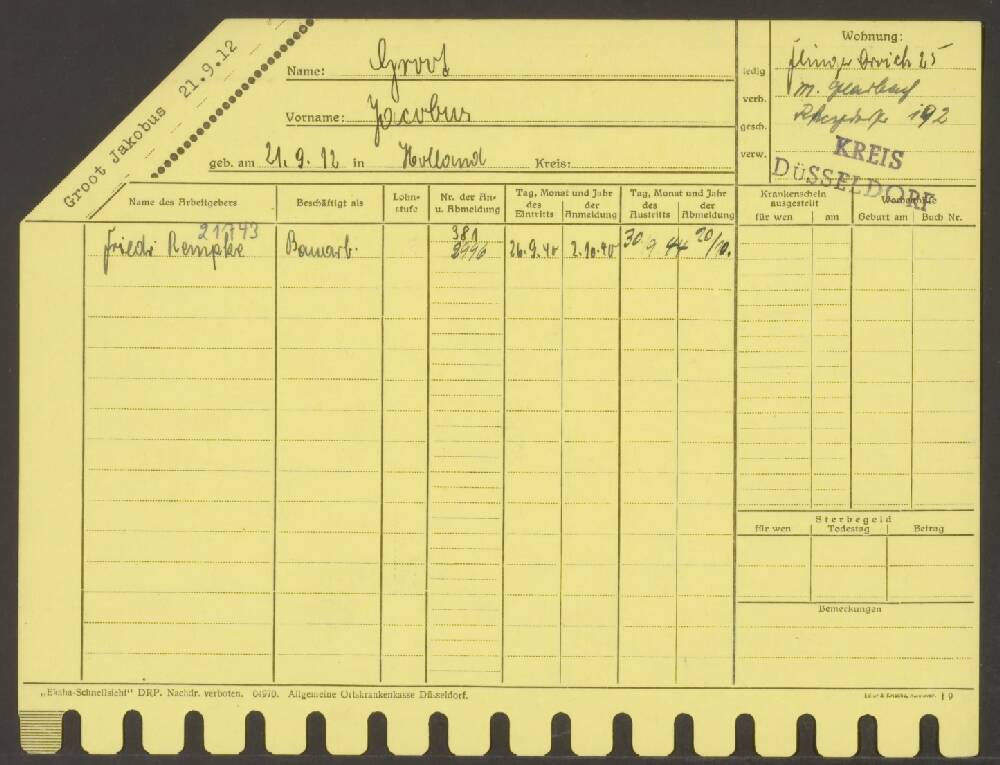 Groot Jakobus 21.9.12
Name: Groot
Vorname: Jacobus
geb. am 21.9.12 in Holland Kreis:
ledig
verh.
gesch.
verw.
Wohnung:
25
M. Gladbach
192
KREIS
DÜSSELDORF
Name des Arbeitgebers
Beschäftigt als
Lohn-
stufe
Nr. der An-
u. Abmeldung
Tag, Monat und Jahr
des Eintritts
der Anmeldung
Tag, Monat und Jahr
des Austritts
der Abmeldung
Krankenschein
ausgestellt
für wen
am
Wochenhilfe
Geburt am
Buch Nr.
21743
Friedr. Rempke Bauarb. 381 26.9.40 2.10.40 30 9 44 20/10.
3996
Sterbegeld
für wen
Todestag
Betrag
Bemerkungen
„Ekaha-Schnellsicht“ DRP. Nachdr. verboten. 04970. Allgemeine Ortskrankenkasse Düsseldorf.